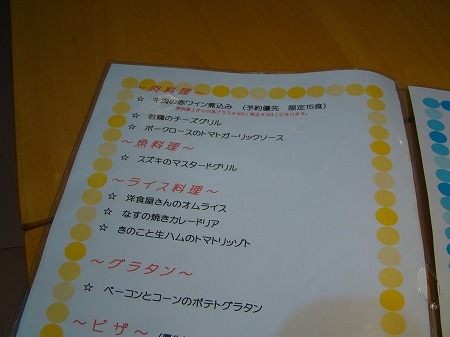 ～肉料理～
☆ 牛肉の赤ワイン煮込み （予約優先 限定15食）
☆ 若鶏のチーズグリル
☆ ポークロースのトマトガーリックソース
～魚料理～
☆ スズキのマスタードグリル
～ライス料理～
☆ 洋食屋さんのオムライス
☆ なすの焼きカレードリア
☆ きのこと生ハムのトマトリッゾト
～グラタン～
☆ ベーコンとコーンのポテトグラタン
～ピザ～